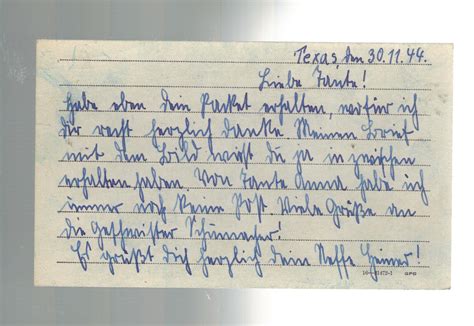 Texas, den 30.11.44.
Liebe Tante!
Habe eben dein Packet erhalten, wofür ich
dir recht herzlich danke. Meinen Brief
mit dem Bild wirst du ja inzwischen
erhalten haben. Von Tante Anna habe ich
immer noch keine Post. Viele Grüße an
die Geschwister Schumacher!
Es grüßt Dich herzlich dein Neffe Heiner!
GPO